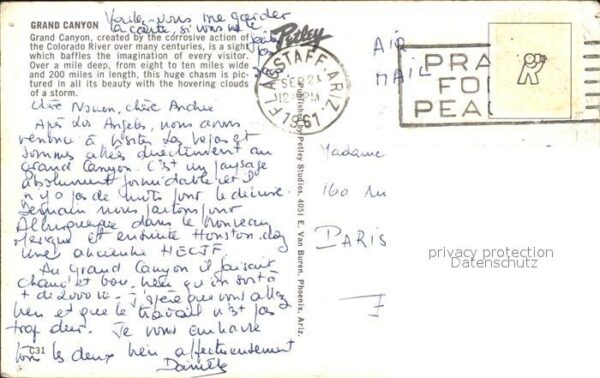 Voulez-vous me garder
la carte, si vous ne le
GRAND CANYON
Grand Canyon, created by the corrosive action of
the Colorado River over many centuries, is a sight
which baffles the imagination of every visitor.
Over a mile deep, from eight to ten miles wide
and 200 miles in length, this huge chasm is pic-
tured in all its beauty with the hovering clouds
of a storm.
Chère Nonon, chère
Après Los Angeles, nous avons
à visiter Las Vegas et
sommes allés directement au
Grand Canyon. C'est un paysage
absolument formidable et il
n'y a pas de mots pour le décrire.
Demain nous partons pour
Albuquerque dans le Nouveau
Mexique et ensuite Houston chez
une ancienne HECJF
Au Grand Canyon il faisait
chaud et bon, bien qu'on soit à
+ de 2000 m. J'espère que vous allez
bien et que le travail n'est pas
trop dur. Je vous embrasse
tous les deux bien affectueusement
Danièle
C31
Petley
Published by Petley Studios, 4051 E. Van Buren, Phoenix, Ariz.
FLAGSTAFF, ARIZ.
SEP 2
1967
AIR
MAIL
PRAY
FOR
PEACE
Madame
160 rue
PARIS
privacy protection
Datenschutz